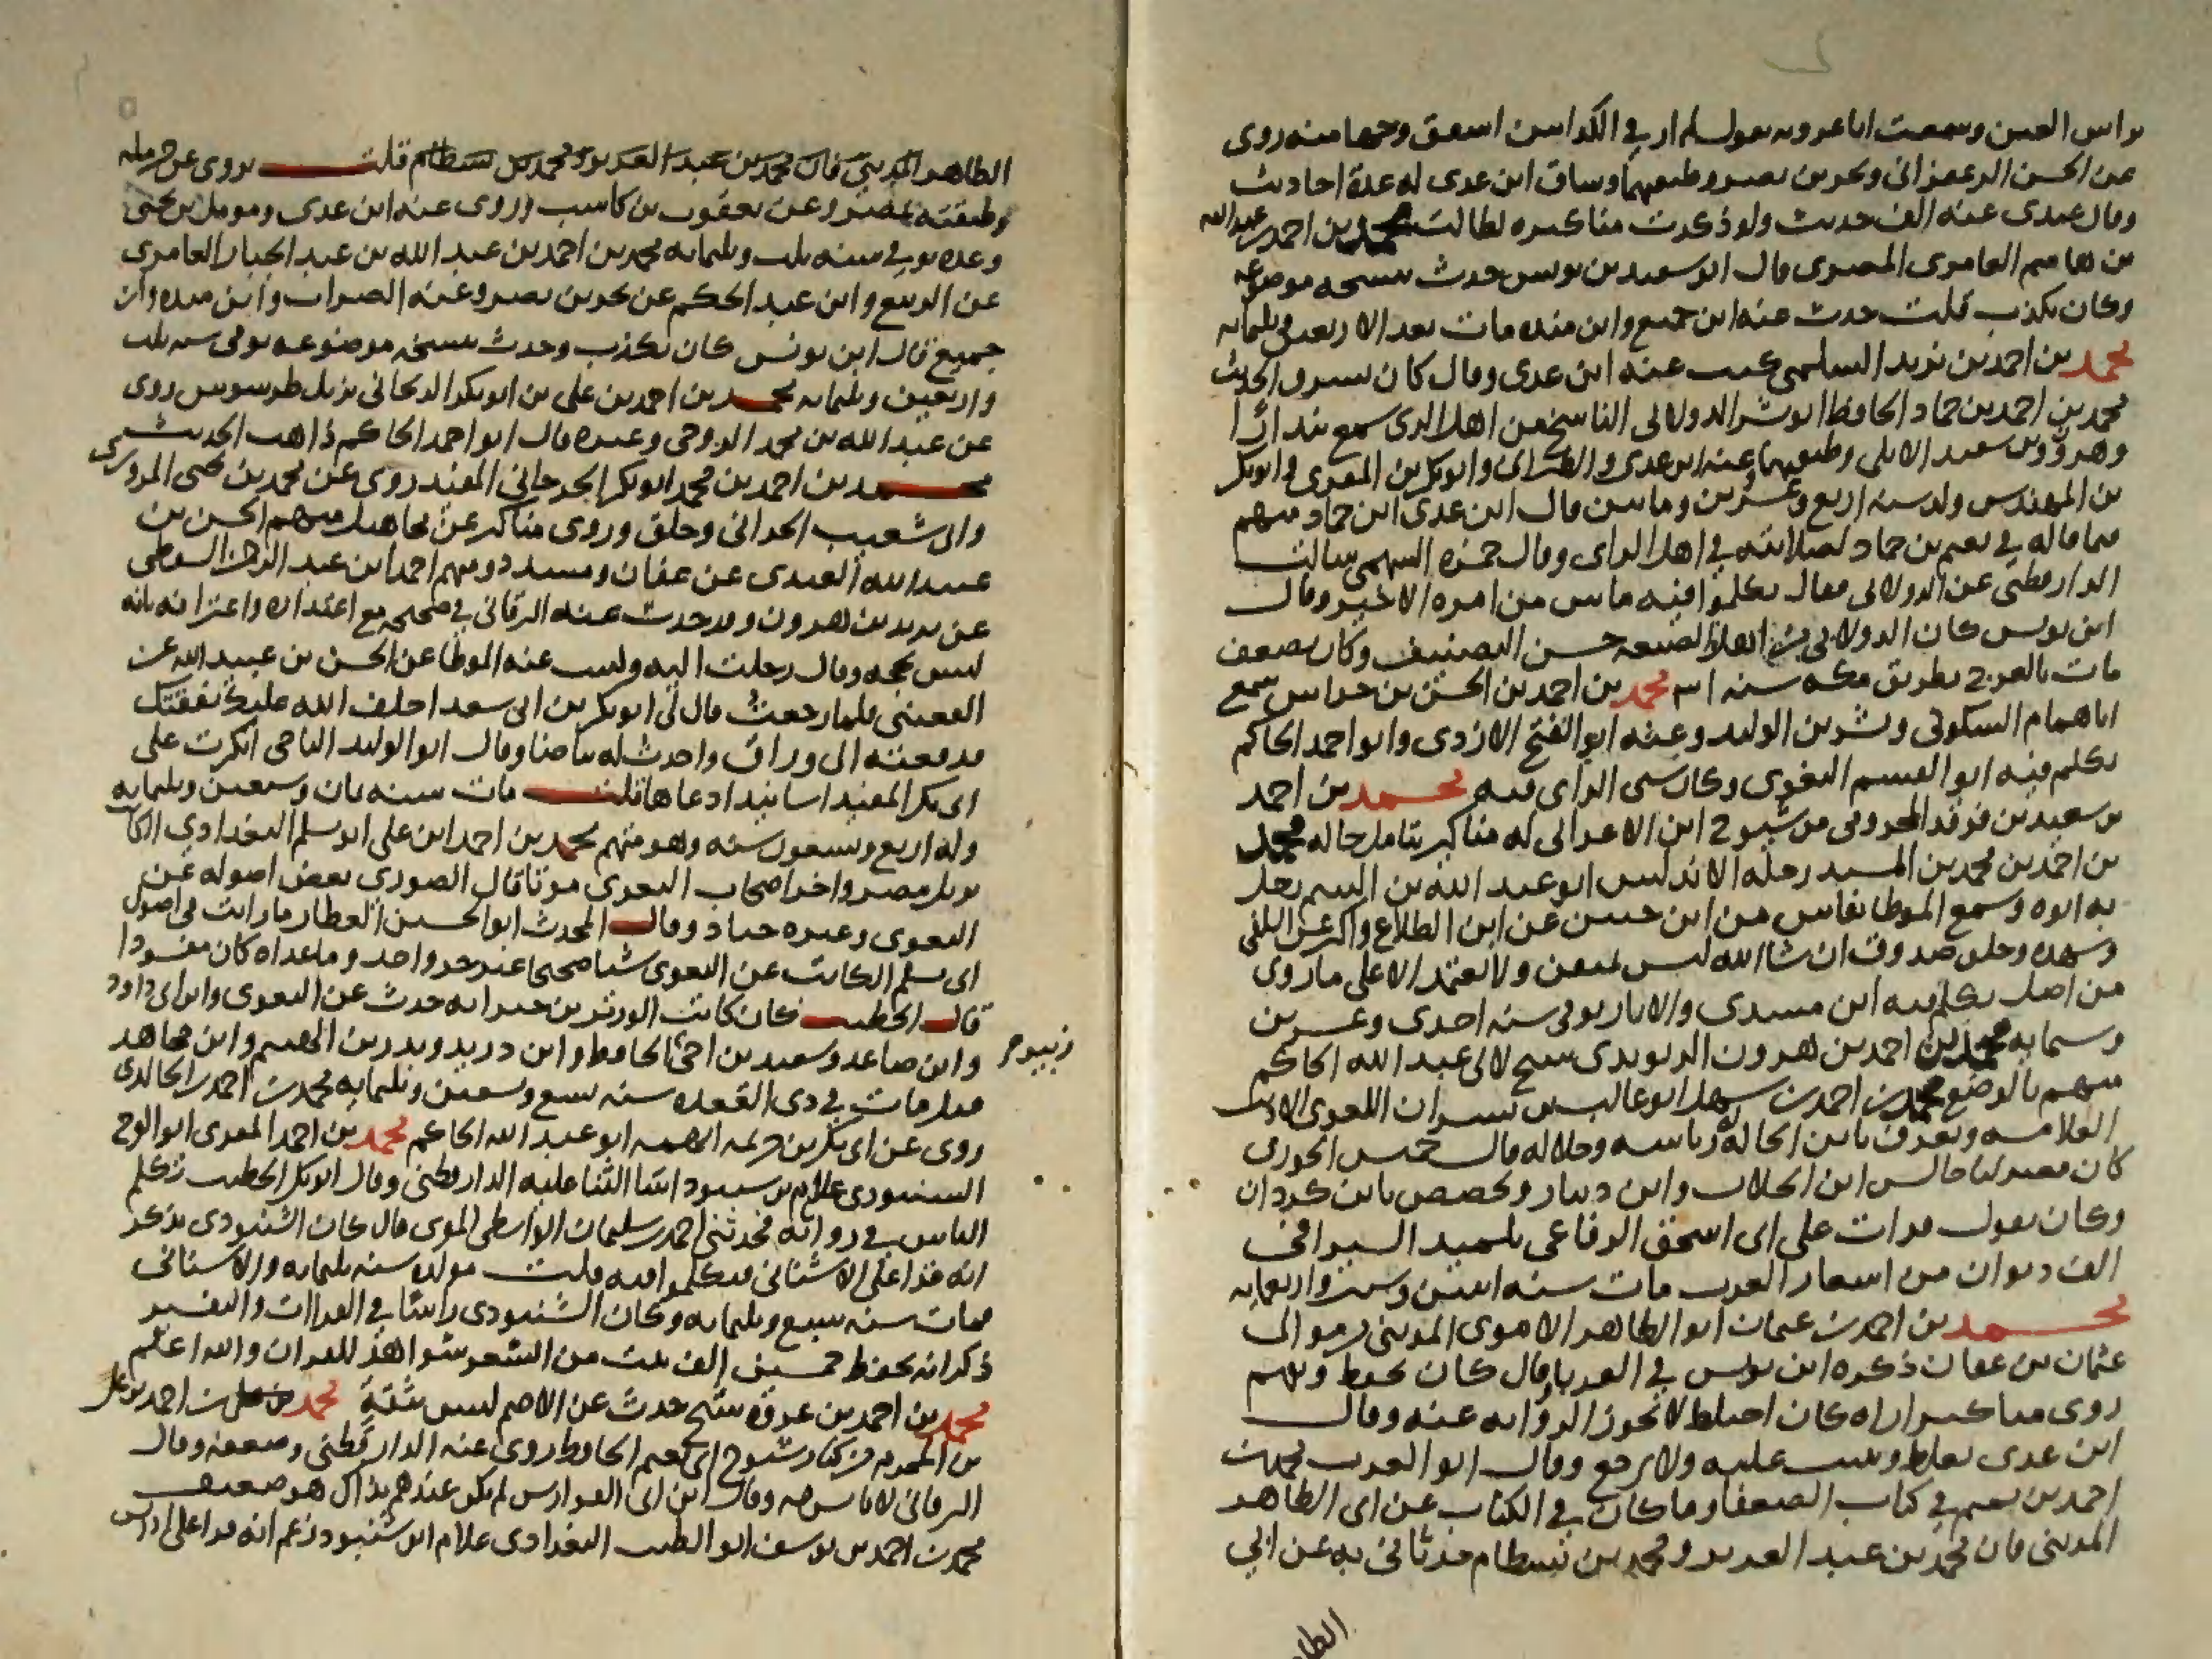 وابن العين وسمعت ابا عروبه يقول لم ار في الكذابين اصفق وجها منه روى
عن الحسن الزعفراني وبحر بن نصر وطبقتهما وساق ابن عدى له عدة احاديث
وقال عبدى عنه الف حديث ولو ذكرت مناكيره لطالت محمد بن احمد بن عبد الله
بن هاشم العامرى المصرى قال ابو سعيد بن يونس حدث بنسخه موضوعه
وكان يكذب قلت حدث عنه ابن جميع وابن منده مات بعد الاربعين وثلثمايه
محمد بن احمد بن يزيد السلمى كتب عنه ابن عدى وقال كان يسرق الحديث
محمد بن احمد بن حماد الحافظ ابو بشر الدولابى الناسخ من اهل الرى سمع بندارا
وهرون بن سعيد الايلى وطبقتهما وعنه ابن عدى والطبرانى وابو بكر بن المقرى وابو بكر
بن المهندس ولد سنه اربع وعشرين ومايتين قال ابن عدى ابن حماد متهم
فيما قاله في نعيم بن حماد لصلابته في اهل الراى وقال حمزه السهمى سالت
الدارقطنى عن الدولابى فقال تكلموا فيه ما تبين من امره الا خير وقال
ابن يونس كان الدولابى من اهل الصنعه حسن التصنيف وكان يضعف
مات بالعرج بطريق مكه سنه محمد بن احمد بن الحسن بن خراش سمع
ابا همام السكونى وبشر بن الوليد وعنه ابو الفتح الازدى وابو احمد الحاكم
تكلم فيه ابو القسم البغوى وكان سى الراى فيه محمد بن احمد
بن سعيد بن فرقد المخزومى من شيوخ ابن الاعرابى له مناكير يتامل حاله محمد
بن احمد بن محمد بن رحله الاندلس ابو عبد الله بن اليتيم رحل
به ابوه وسمع الموطا بفاس من ابن حنين عن ابن الطلاع واكثر عن السلفى
وشهده وخلق صدوق ان شا الله ليس بمتقن ولا يعتمد الا على ما روى
من اصل تكلم فيه ابن مسدى والابار توفى سنه احدى وعشرين
وستمايه محمد بن احمد بن هرون الريوندى شيخ لابى عبد الله الحاكم
متهم بالوضع محمد بن احمد بن سهل ابو غالب بن بشران اللغوى الاديب
العلامه ويعرف بابن الخاله رياسه وجلاله قال خميس الحوزى
كان معتزليا جالس ابن الجلاب وابن دينار وتخصص بابن كردان
وكان يقول قرات على ابى اسحق الرفاعى تلميذ السيرافى
الف ديوان من اشعار العرب مات سنه اثنين وستين واربعمايه
محمد بن احمد بن عثمان ابو الطاهر الاموى المدينى من موالى
عثمان بن عفان ذكره ابن يونس في الغربا وقال كان يحفظ ويفهم
روى مناكير اراه كان اختلط لا تجوز الروايه عنه وقال
ابن عدى يغلط ويثبت عليه ولا يرجع وقال ابو العرب محمد بن
احمد بن تميم في كتاب الضعفا وما كان في الكتاب عن ابى الطاهر
المدينى فان محمد بن عبد العزيز ومحمد بن بسطام حدثانى به عن ابى
الطا
الطاهر المدينى قال محمد بن عبد العزيز ومحمد بن بسطام قلت يروى عن حرمله
وطبقته بمصر وعن يعقوب بن كاسب روى عنه ابن عدى ومومل بن يحيى
وعده توفى سنه ثلث وثلثمايه محمد بن احمد بن عبد الله بن عبد الجبار العامرى
عن الربيع وابن عبد الحكم عن بحر بن نصر وعنه الضراب وابن منده وابن
جميع قال ابن يونس كان يكذب وحدث بنسخه موضوعه توفى سنه ثلث
واربعين وثلثمايه محمد بن احمد بن على بن ابو بكر الريحانى نزيل طرسوس روى
عن عبد الله بن محمد الروحى وغيره قال ابو احمد الحاكم ذاهب الحديث
محمد بن احمد بن محمد ابو بكر الجرجانى المفيد روى عن محمد بن يحيى المروزى
وابى شعيب الحرانى وخلق وروى مناكير عن مجاهيل منهم الحسن بن
عبيد الله العبدى عن عفان ومسدد ومنهم احمد ابن عبد الرحمن السقطى
عن يزيد بن هرون وقد حدث عنه البرقانى في صحيحه مع اعتذاره واعترافه بانه
ليس بحجه وقال رحلت اليه وكتبت عنه الموطا عن الحسن بن عبيد الله عن
القعنبى فلما رجعت قال لى ابو بكر بن ابى سعد اخلف الله عليك نفقتك
فدفعته الى وراق واخذت به بياضا وقال ابو الوليد الباجى انكرت على
ابى بكر المفيد اسانيد ادعاها قلت مات سنه ثمان وسبعين وثلثمايه
وله اربع وتسعون سنه وهو متهم محمد بن احمد ابن على ابو مسلم البغدادى الكاتب
نزيل مصر واخر اصحاب البغوى موتا قال الصورى بعض اصوله عن
البغوى وغيره جياد وقال المحدث ابو الحسين العطار ما رايت فى اصول
ابى مسلم الكاتب عن البغوى شيا صحيحا غير جزو واحد وما عداه كان مفسودا
قال الخطيب كان كاتب الوزير بن حنزابه حدث عن البغوى وابن ابى داود
وابن صاعد وسعيد بن اخى الحافظ وابن دريد وبدر بن الهيثم وابن مجاهد
زبير م
قيل مات في ذى القعده سنه تسع وتسعين وثلثمايه محمد بن احمد الخالدى
روى عن ابى بكر بن خزيمه اتهمه ابو عبد الله الحاكم محمد بن احمد المقرى ابو الفرج
الشنبوذى غلام بن شنبوذ اسا الثنا عليه الدارقطنى وقال ابو بكر الخطيب تكلم
الناس في رواياته فحدثنى احمد بن سليمان الواسطى المقرى قال كان الشنبوذى يذكر
انه قرا على الاشنانى فتكلموا فيه قلت مولده سنه ثلثمايه والاشنانى
مات سنه سبع وثلثمايه وكان الشنبوذى راسا في القراات والتفسير
ذكر انه يحفظ خمسين الف بيت من الشعر شواهد للقران والله اعلم
محمد بن احمد بن عروه شيخ حدث عن الاصم ليس بثقة محمد بن احمد بن على
بن المحرم من كبار شيوخ ابى نعيم الحافظ روى عنه الدارقطنى وضعفه وقال
البرقانى لا باس به وقال ابن ابى الفوارس لم يكن عندهم بذاك هو ضعيف
محمد بن احمد بن يوسف ابو الطيب البغدادى غلام ابن شنبوذ زعم انه قرا على ادريس